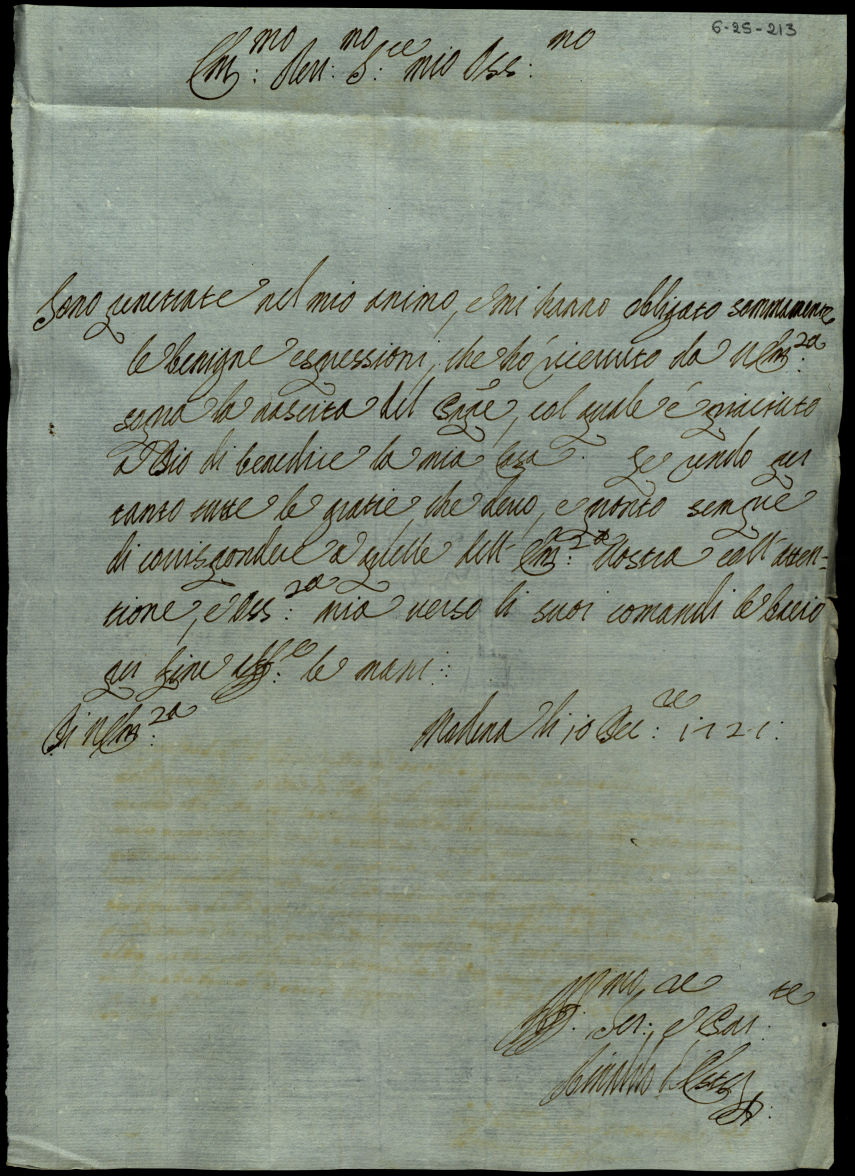 6-25-213
Em:mo Reu:mo S:re mio Oss:mo
Sono penetrate nel mio animo, e mi hanno obbligato sommamente
le benigne espressioni, che ho riceuuto da V Em:za
sopra la nascita del, col quale è piaciuto
a Dio di benedire la mia Casa. Le rendo per
tanto tutte le gratie, che deuo, e pronto sempre
di corrispondere a quelle dell' Em:za Vostra coll'atten=
tione, e Oss:za mia uerso li suoi comandi le bacio
per fine aff:te le mani::
Di V Em:za Modena li 10 Dec:re 1721:
Aff:mo
Ser:, e Par:te
Rinaldo d'Este